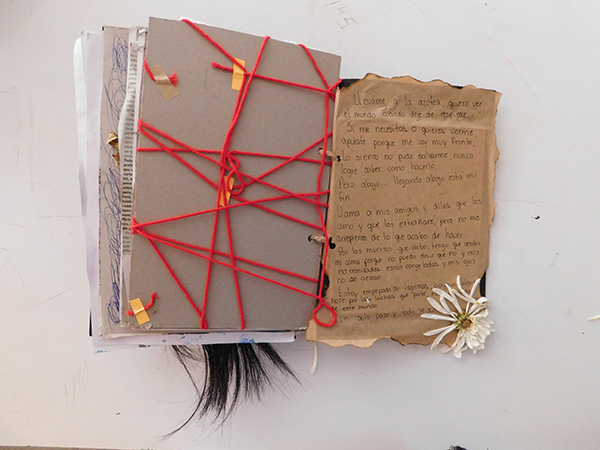 Llevame a la azotea, quiero ver
el mundo cuando deje de respirar.
Si me necesitas o quieres verme
apurate porque me voy muy pronto,
Lo siento no pude salvarme, nunca
logre saber como hacerlo.
Pero abajo... llegando abajo esta mi
fin.
Llama a mis amigos y diles que los
amo y que los extrañare, pero no me
arrepiento de lo que acabo de hacer.
Por los muertos que debo, tengo que vender
mi alma porque no puedo decir que no y mis
extremidades estan congeladas y mis ojos
no se cierran.
Estoy empapada de lagrimas,
note por las luchas que pase
de este mundo.
Un solo paso y todo se